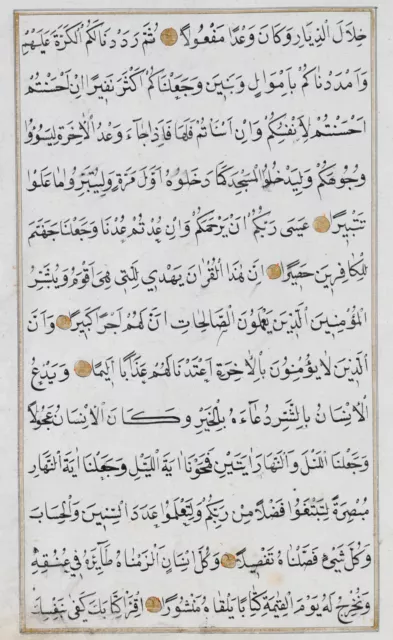 خِلَالَ الدِّيَارِ وَكَانَ وَعْدًا مَفْعُولًا ثُمَّ رَدَدْنَا لَكُمُ الْكَرَّةَ عَلَيْهِمْ
وَاَمْدَدْنَاكُمْ بِاَمْوَالٍ وَبَنِينَ وَجَعَلْنَاكُمْ اَكْثَرَ نَفِيرًا اِنْ اَحْسَنْتُمْ
اَحْسَنْتُمْ لِاَنْفُسِكُمْ وَاِنْ اَسَاْتُمْ فَلَهَا فَاِذَا جَاءَ وَعْدُ الْاٰخِرَةِ لِيَسُوؤُا
وُجُوهَكُمْ وَلِيَدْخُلُوا الْمَسْجِدَ كَمَا دَخَلُوهُ اَوَّلَ مَرَّةٍ وَلِيُتَبِّرُوا مَا عَلَوْا
تَتْبِيرًا عَسَى رَبُّكُمْ اَنْ يَرْحَمَكُمْ وَاِنْ عُدْتُمْ عُدْنَا وَجَعَلْنَا جَهَنَّمَ
لِلْكَافِرِينَ حَصِيرًا اِنَّ هٰذَا الْقُرْاٰنَ يَهْدِي لِلَّتِي هِيَ اَقْوَمُ وَيُبَشِّرُ
الْمُؤْمِنِينَ الَّذِينَ يَعْمَلُونَ الصَّالِحَاتِ اَنَّ لَهُمْ اَجْرًا كَبِيرًا وَاَنَّ
الَّذِينَ لَا يُؤْمِنُونَ بِالْاٰخِرَةِ اَعْتَدْنَا لَهُمْ عَذَابًا اَلِيمًا وَيَدْعُ
الْاِنْسَانُ بِالشَّرِّ دُعَاءَهُ بِالْخَيْرِ وَكَانَ الْاِنْسَانُ عَجُولًا
وَجَعَلْنَا اللَّيْلَ وَالنَّهَارَ اٰيَتَيْنِ فَمَحَوْنَا اٰيَةَ اللَّيْلِ وَجَعَلْنَا اٰيَةَ النَّهَارِ
مُبْصِرَةً لِتَبْتَغُوا فَضْلًا مِنْ رَبِّكُمْ وَلِتَعْلَمُوا عَدَدَ السِّنِينَ وَالْحِسَابَ
وَكُلَّ شَيْءٍ فَصَّلْنَاهُ تَفْصِيلًا وَكُلَّ اِنْسَانٍ اَلْزَمْنَاهُ طَائِرَهُ فِي عُنُقِهِ
وَنُخْرِجُ لَهُ يَوْمَ الْقِيٰمَةِ كِتَابًا يَلْقَاهُ مَنْشُورًا اِقْرَاْ كِتَابَكَ كَفٰى بِنَفْسِكَ